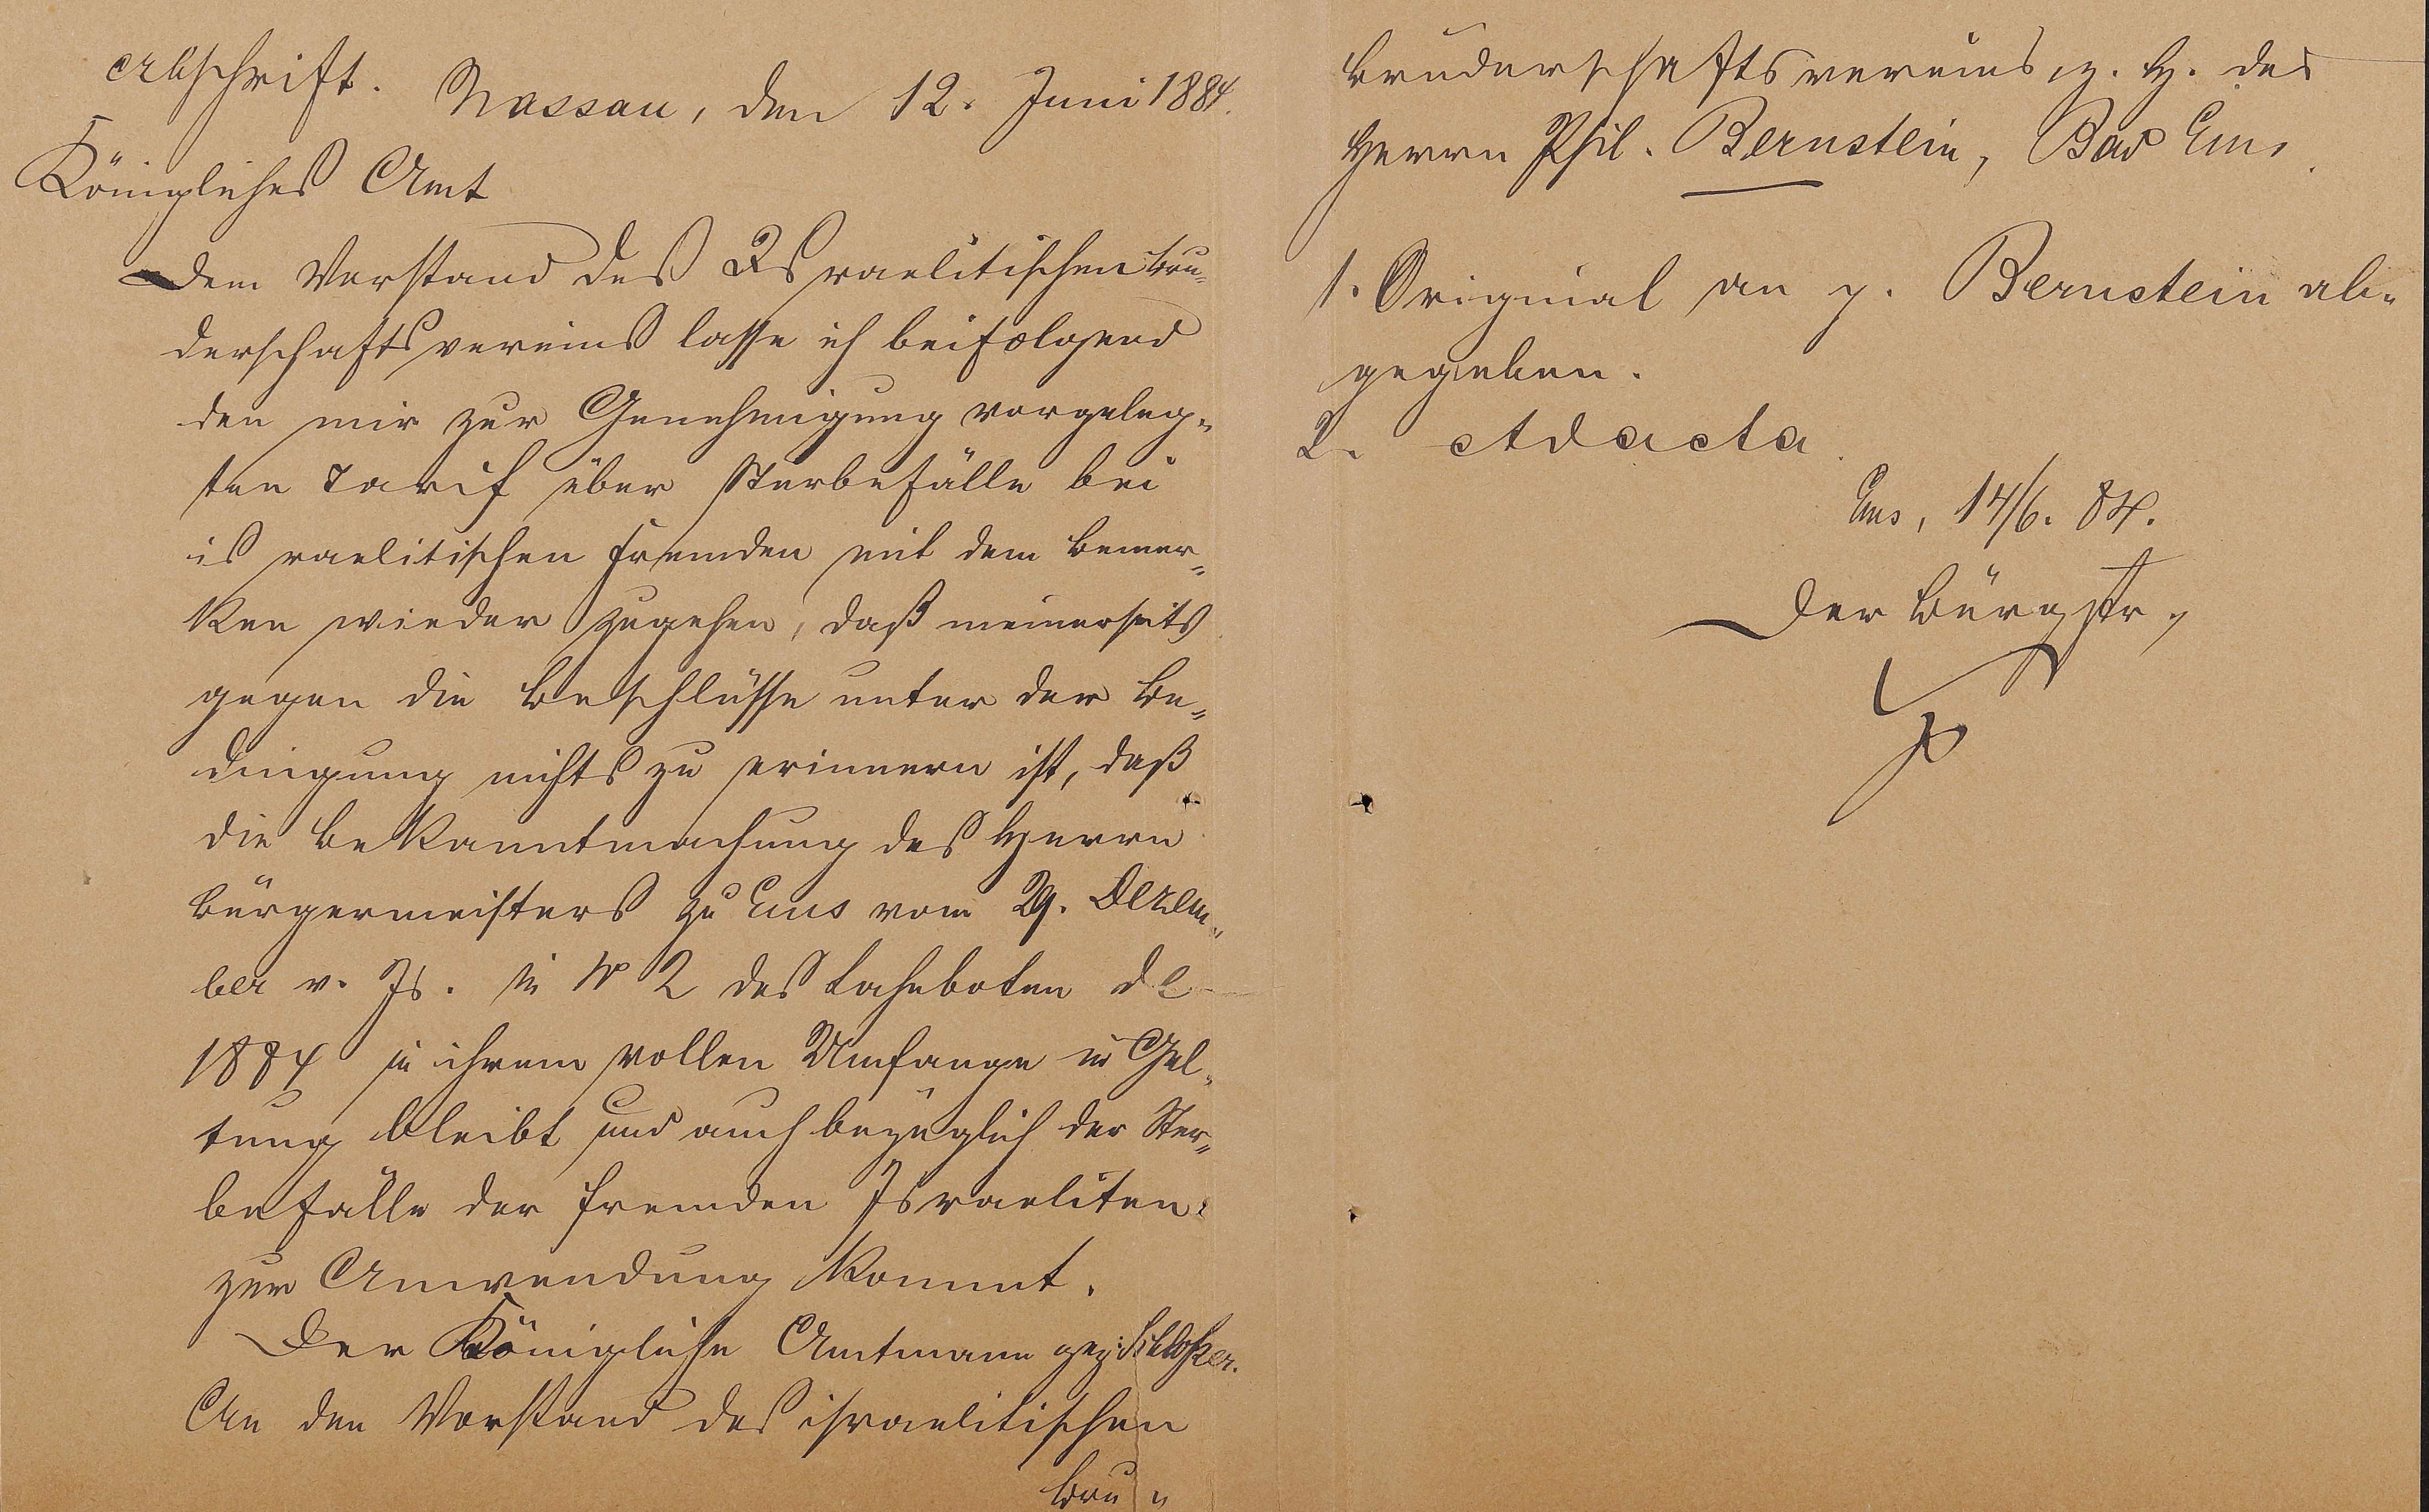 Abschrift. Nassau, den 12. Juni 1884.
Königliches Amt
Dem Vorstand des Israelitischen Bru-
derschaftsvereins lasse ich beifolgend
den mir zur Genehmigung vorgeleg-
ten Tarif über Sterbefälle bei
israelitischen Fremden mit dem Bemer-
ken wieder zugehen, daß meinerseits
gegen die Beschlüsse unter der Be-
dingung nichts zu erinnern ist, daß
die Bekanntmachung des Herrn
Bürgermeisters zu Ems vom 29. Dezem-
ber v. Js. in No 2 des Lahnboten de
1884 in ihrem vollen Umfange in Gel-
tung bleibt und auch bezüglich der Ster-
befälle der fremden Israeliten
zur Anwendung kommt.
Der Königliche Amtmann gez: Schloßer.
An den Vorstand des israelitischen
Bru-
Bruderschaftsvereins, z. H. des
Herrn Phil. Bernstein, Bad Ems.
1. Original an p. Bernstein ab-
gegeben.
2. Ad acta.
Ems, 14/6. 84.
Der Bürgstr.